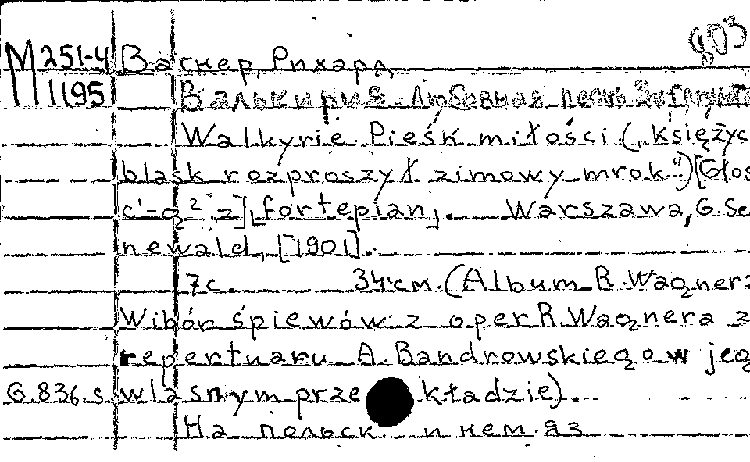 803
М 251-4 Вагнер, Рихард
1195 Валькирия. Любовная песнь Зигмунда
Walkyrie. Pieśń miłości („księżyc
blask rozproszył zimowy mrok") [Głos
c'-g² z] fortepian. Warszawa, G. Se
newald, [1901].
7с. 34 см. (Album R. Wagnera
Wibór śpiewów z oper R. Wagnera z
repertuaru A. Bandrowskiego w jeg
G. 836 s własnym przekładzie).
На польск. и нем. яз